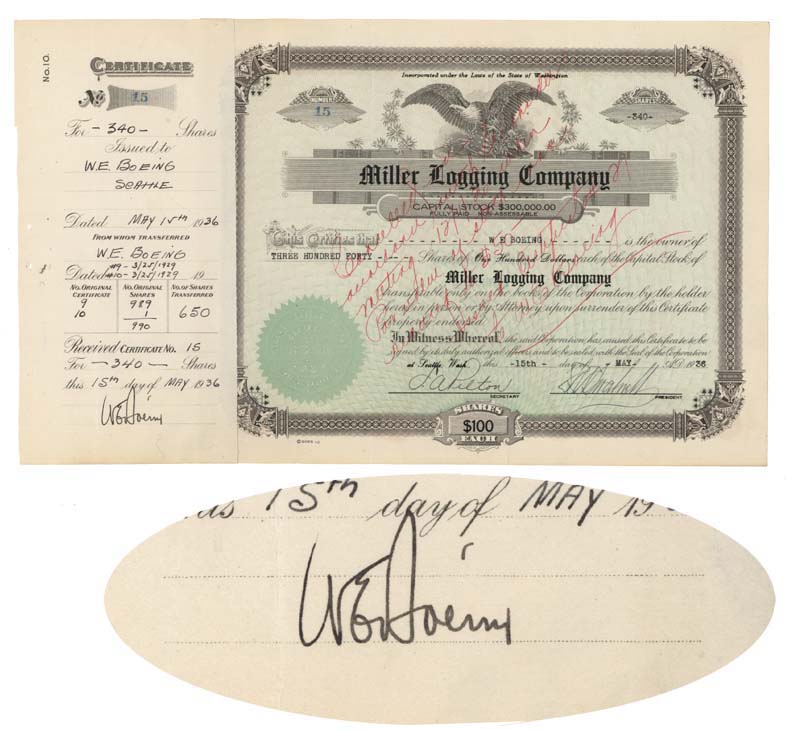 No. 10.
CERTIFICATE
No 15
For - 340 - Shares
Issued to
W.E. BOEING
SEATTLE
Dated MAY 15th 1936
FROM WHOM TRANSFERRED
W.E. BOEING
#9 - 3/25/1929
Dated #10 - 3/25/1929 19
NO. ORIGINAL CERTIFICATE NO. ORIGINAL SHARES NO. OF SHARES TRANSFERRED
9 989
10 1 650
990
Received CERTIFICATE No. 15
For - 340 - Shares
this 15th day of MAY 1936
WEBoeing
Incorporated under the Laws of the State of Washington
NUMBER
15
SHARES
-340-
Miller Logging Company
CAPITAL STOCK $300,000.00
FULLY PAID NON-ASSESSABLE
This Certifies that - - - - - W E BOEING - - - - - is the owner of
THREE HUNDRED FORTY - - - - Shares of One Hundred Dollars each of the Capital Stock of
Miller Logging Company
transferable only on the books of the Corporation by the holder
hereof in person or by Attorney upon surrender of this Certificate
properly endorsed.
In Witness Whereof, the said Corporation has caused this Certificate to be
signed by its duly authorized officers and to be sealed with the Seal of the Corporation
at Seattle, Wash. this -15th- day of -MAY- A.D. 1936
SECRETARY PRESIDENT
SHARES
$100
EACH
this 15th day of MAY 19
WEBoeing